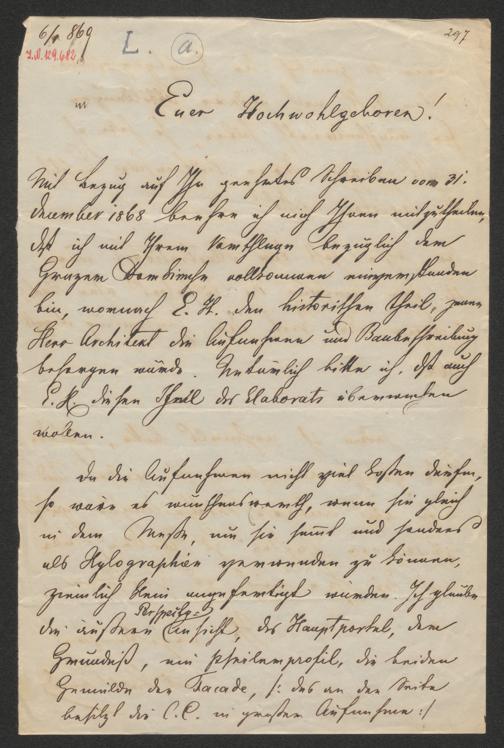 6/1 869
297
L. a.
I.N. 129.682
Euer Hochwohlgeboren!
Mit Bezug auf Ihr geehrtes Schreiben vom 31.
December 1868 beehre ich mich Ihnen mitzutheilen,
daß ich mit Ihrem Vorschlage bezüglich der
Grazer Domkirche vollkommen einverstanden
bin, wornach E. H. den historischen Theil, jener
Herr Architekt die Aufnahmen und Baubeschreibung
besorgen würde. Natürlich bitte ich, daß auch
E. H. diesen Theil des Elaborats überwachen
wollen.
Da die Aufnahmen nicht viel kosten dürfen,
so wäre es wünschenswerth, wenn sie gleich
in dem Maße, um sie sammt und sonders
als Xylographien verwenden zu können,
ziemlich klein angefertigt würden. Ich glaube
die äußere Perspektiv-
Ansicht, des Hauptportal, den
Grundriß, ein Pfeilerprofil, die beiden
Gemälde der Facade, /: das an der Seite
besitzt die C.C. in großer Aufnahme :/